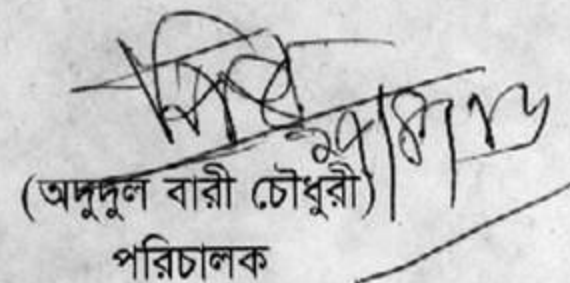 (অদুদুল বারী চৌধুরী)
পরিচালক